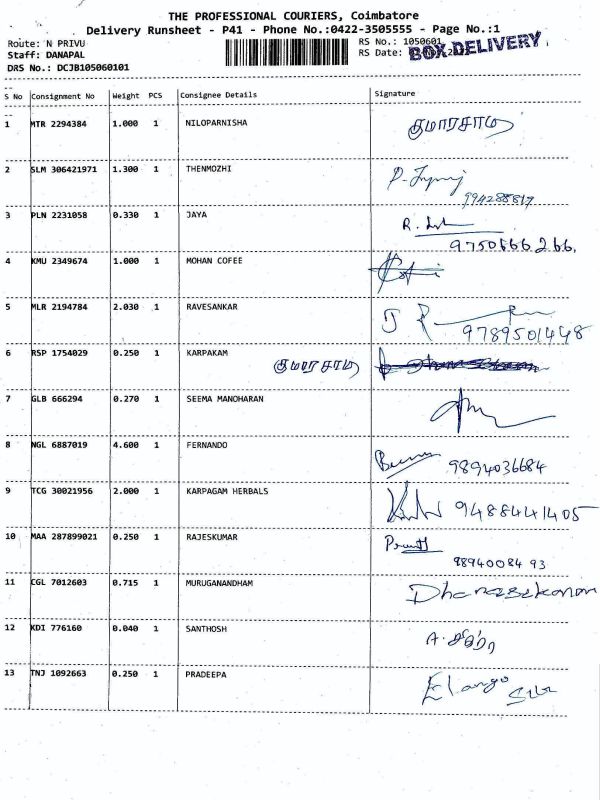 THE PROFESSIONAL COURIERS, Coimbatore
Delivery Runsheet - P41 - Phone No.:0422-3505555 - Page No.:1
Route: N PRIVU RS No.: 1050601
Staff: DANAPAL RS Date: BOX DELIVERY
DRS No.: DCJB105060101
S No Consignment No Weight PCS Consignee Details Signature
1 MTR 2294384 1.000 1 NILOPARNISHA குமாரசாமி
2 SLM 306421971 1.300 1 THENMOZHI
994288817
3 PLN 2231058 0.330 1 JAYA
9750666266
4 KMU 2349674 1.000 1 MOHAN COFEE
5 MLR 2194784 2.030 1 RAVESANKAR
9789501448
6 RSP 1754029 0.250 1 KARPAKAM குமாரசாமி
7 GLB 666294 0.270 1 SEEMA MANOHARAN
8 NGL 6887019 4.600 1 FERNANDO 9894036684
9 TCG 30021956 2.000 1 KARPAGAM HERBALS 9488441405
10 MAA 287899021 0.250 1 RAJESKUMAR
9894008493
11 CGL 7012603 0.715 1 MURUGANANDHAM Dhanasekaran
12 KDI 776160 0.040 1 SANTHOSH
13 TNJ 1092663 0.250 1 PRADEEPA Elango